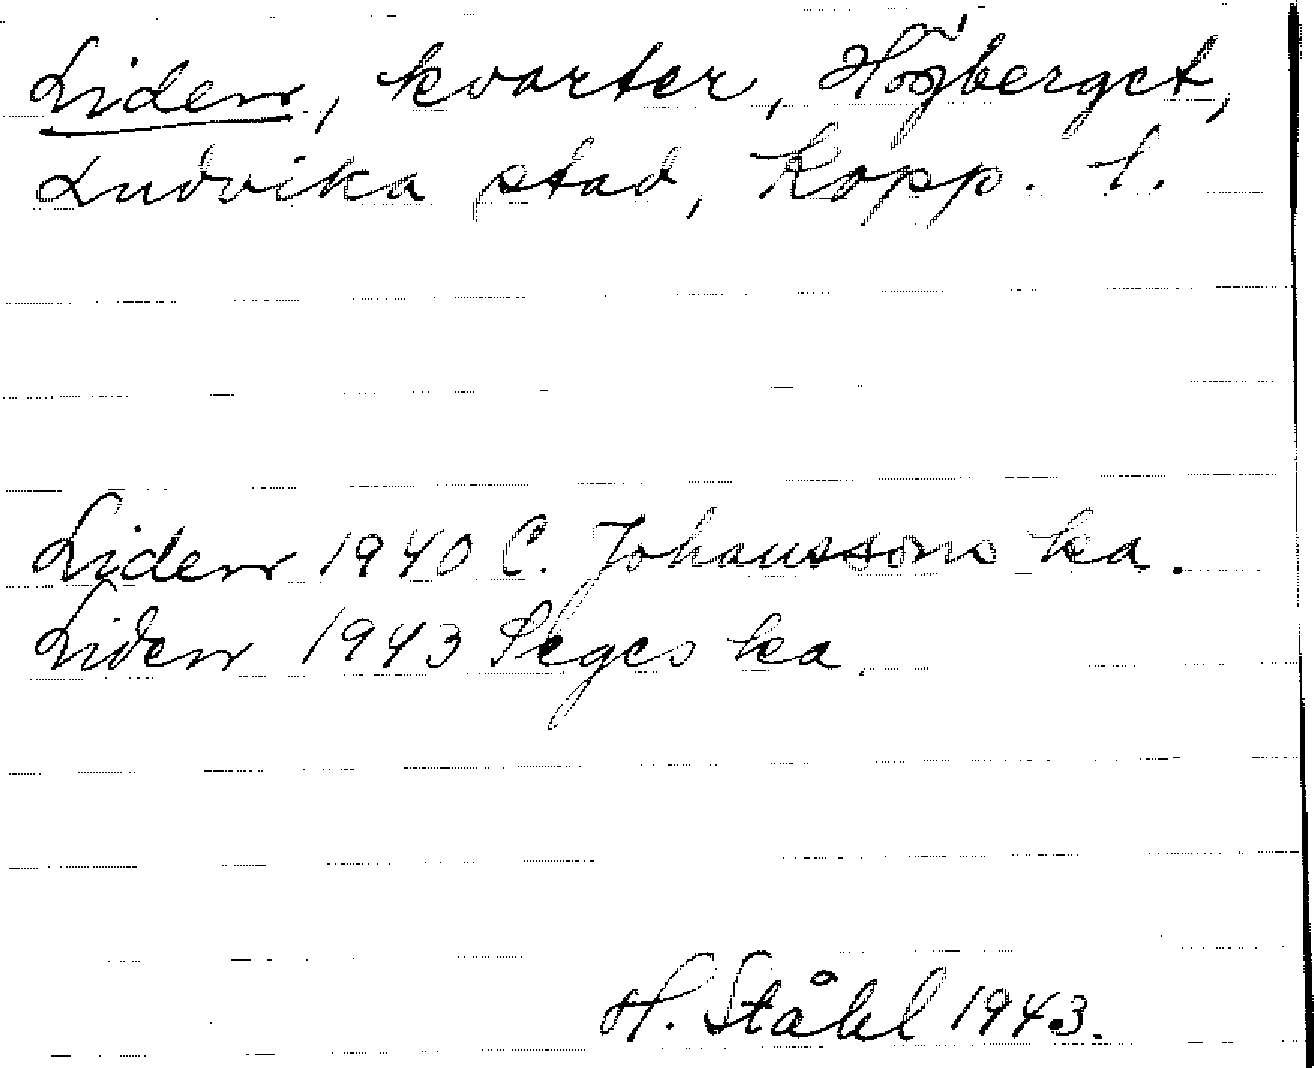 Liden, kvarter, Högberget,
Ludvika stad, Kopp. l.
Liden 1940 C. Johanssons ka.
Liden 1943 Seges ka.
H. Ståhl 1943.